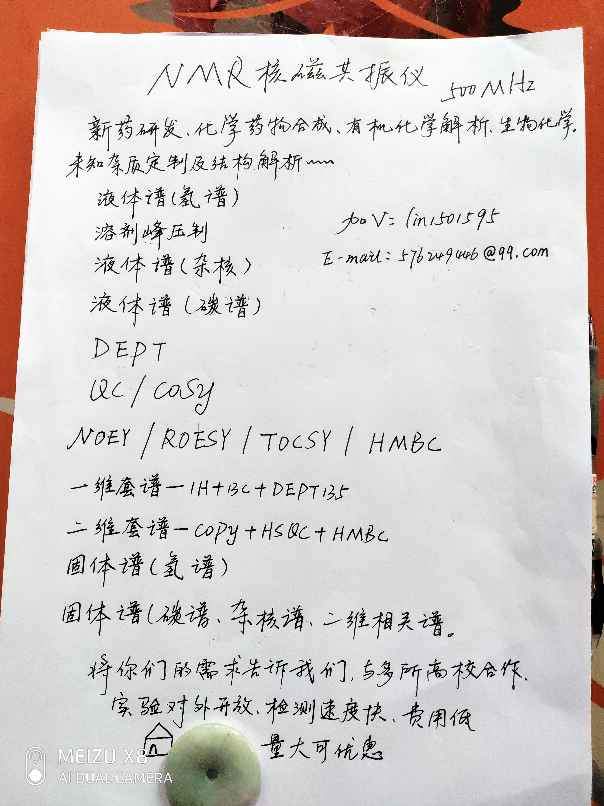 NMR核磁共振仪 500MHz
新药研发、化学药物合成、有机化学解析、生物化学、
未知杂质定制及结构解析~~
液体谱(氢谱)
加V: lin1501595
溶剂峰压制
E-mail: 576249446@qq.com
液体谱(杂核)
液体谱(碳谱)
DEPT
QC/COSY
NOEY/ROESY/TOCSY/HMBC
一维套谱-1H+13C+DEPT135
二维套谱-COPY+HSQC+HMBC
固体谱(氢谱)
固体谱(碳谱、杂核谱、二维相关谱。
将你们的需求告诉我们,与多所高校合作.
实验对外开放、检测速度快、费用低
量大可优惠
MEIZU X8
AI DUAL CAMERA